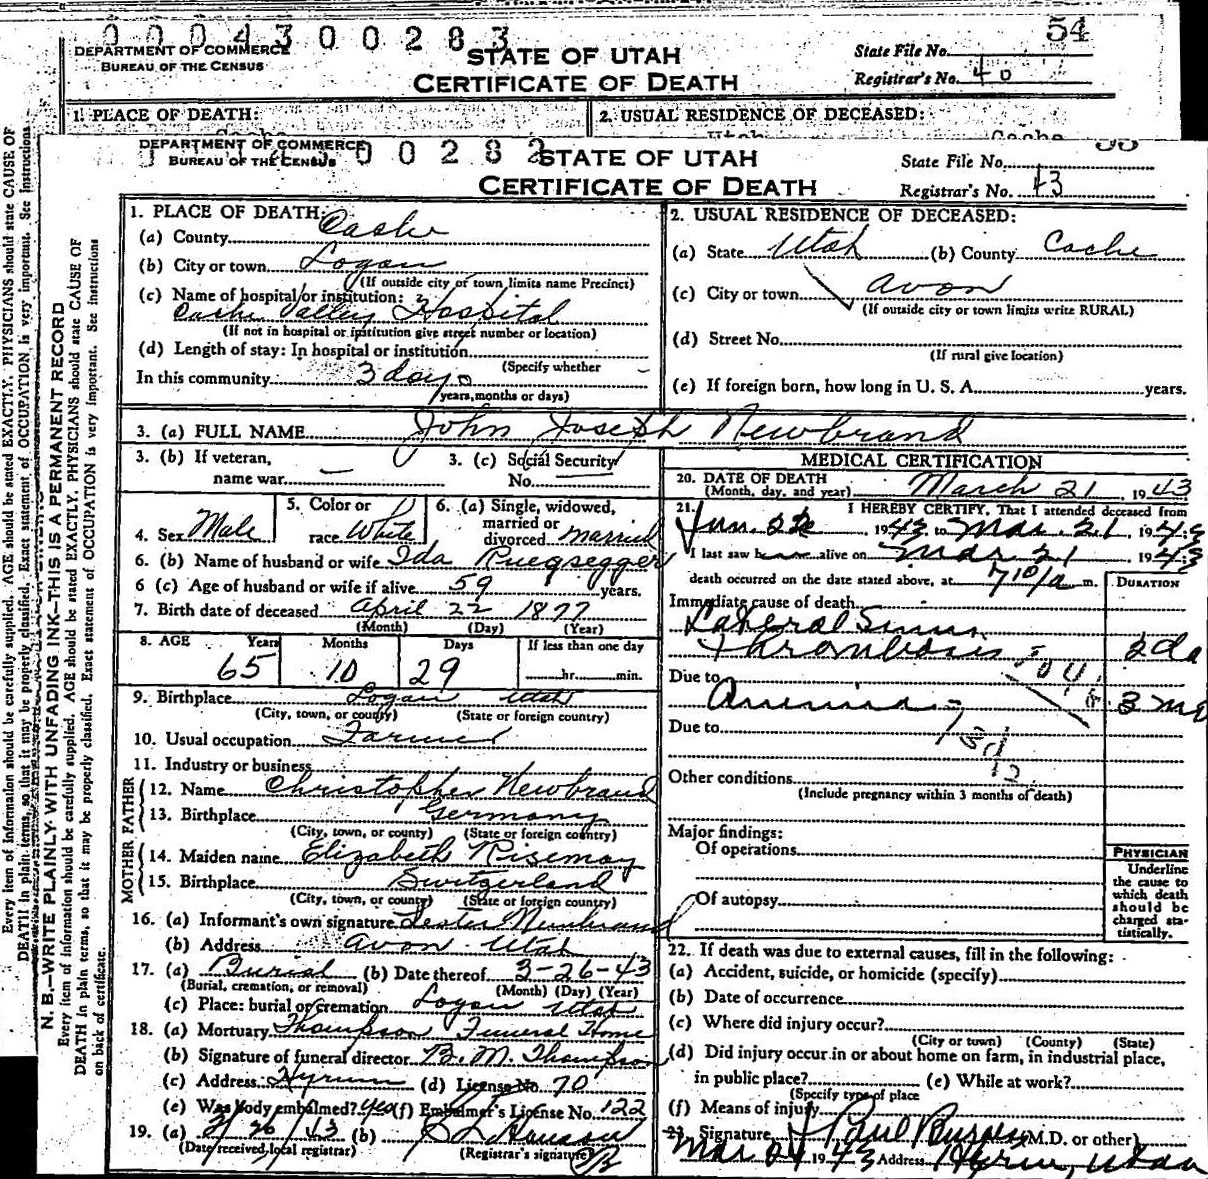 0004300283
54
DEPARTMENT OF COMMERCE
BUREAU OF THE CENSUS
STATE OF UTAH
CERTIFICATE OF DEATH
State File No.
Registrar's No. 40
1. PLACE OF DEATH:
2. USUAL RESIDENCE OF DECEASED:
Cache
Utah Cache
DEPARTMENT OF COMMERCE
BUREAU OF THE CENSUS
00282
STATE OF UTAH
CERTIFICATE OF DEATH
State File No.
Registrar's No. 43
Every item of information should be carefully supplied. AGE should be stated EXACTLY. PHYSICIANS should state CAUSE OF
DEATH in plain terms, so that it may be properly classified. Exact statement of OCCUPATION is very important. See Instructions
N. B.—WRITE PLAINLY WITH UNFADING INK—THIS IS A PERMANENT RECORD
Every item of information should be carefully supplied. AGE should be stated EXACTLY. PHYSICIANS should state CAUSE OF
DEATH in plain terms, so that it may be properly classified. Exact statement of OCCUPATION is very important. See Instructions
on back of certificate.
1. PLACE OF DEATH:
(a) County Cache
(b) City or town Logan
(If outside city or town limits name Precinct)
(c) Name of hospital or institution:
Cache Valley Hospital
(If not in hospital or institution give street number or location)
(d) Length of stay: In hospital or institution
(Specify whether
In this community 3 days
years, months or days)
2. USUAL RESIDENCE OF DECEASED:
(a) State Utah (b) County Cache
(c) City or town Avon
(If outside city or town limits write RURAL)
(d) Street No.
(If rural give location)
(e) If foreign born, how long in U. S. A. years.
3. (a) FULL NAME John Joseph Newbrand
3. (b) If veteran,
name war
3. (c) Social Security
No.
4. Sex Male
5. Color or
race White
6. (a) Single, widowed,
married or
divorced married
6. (b) Name of husband or wife Ida Ruegsegger
6 (c) Age of husband or wife if alive 59 years.
7. Birth date of deceased April 22 1877
(Month) (Day) (Year)
8. AGE Years Months Days If less than one day
65 10 29 hr. min.
9. Birthplace Logan Utah
(City, town, or county) (State or foreign country)
10. Usual occupation Farmer
11. Industry or business
FATHER
12. Name Christopher Newbrand
13. Birthplace Germany
(City, town, or county) (State or foreign country)
MOTHER
14. Maiden name Elizabeth Risemay
15. Birthplace Switzerland
(City, town, or county) (State or foreign country)
16. (a) Informant's own signature Lester Newbrand
(b) Address Avon Utah
17. (a) Burial (b) Date thereof 3-26-43
(Burial, cremation, or removal) (Month) (Day) (Year)
(c) Place: burial or cremation Logan Utah
18. (a) Mortuary Thompson Funeral Home
(b) Signature of funeral director B. M. Thompson
(c) Address Hyrum (d) License No. 70
(e) Was body embalmed? yes (f) Embalmer's License No. 122
19. (a) 3/26/43 (b)
(Date received local registrar) (Registrar's signature)
MEDICAL CERTIFICATION
20. DATE OF DEATH
(Month, day, and year) March 21, 1943
21. I HEREBY CERTIFY, That I attended deceased from
Jan. 22 1943 to Mar. 21 1943
I last saw h alive on Mar 21 1943
death occurred on the date stated above, at 7 10/a m.
DURATION
Immediate cause of death
Lateral Sinus
Thrombosis 2 da
Due to
3 mo
Due to
Other conditions
(Include pregnancy within 3 months of death)
Major findings:
Of operations
Of autopsy
PHYSICIAN
Underline
the cause to
which death
should be
charged sta-
tistically.
22. If death was due to external causes, fill in the following:
(a) Accident, suicide, or homicide (specify)
(b) Date of occurrence
(c) Where did injury occur?
(City or town) (County) (State)
(d) Did injury occur in or about home on farm, in industrial place,
in public place? (e) While at work?
(Specify type of place
(f) Means of injury
23. Signature J Paul Burgess (M.D. or other)
Mar 24 1943 Address Hyrum, Utah